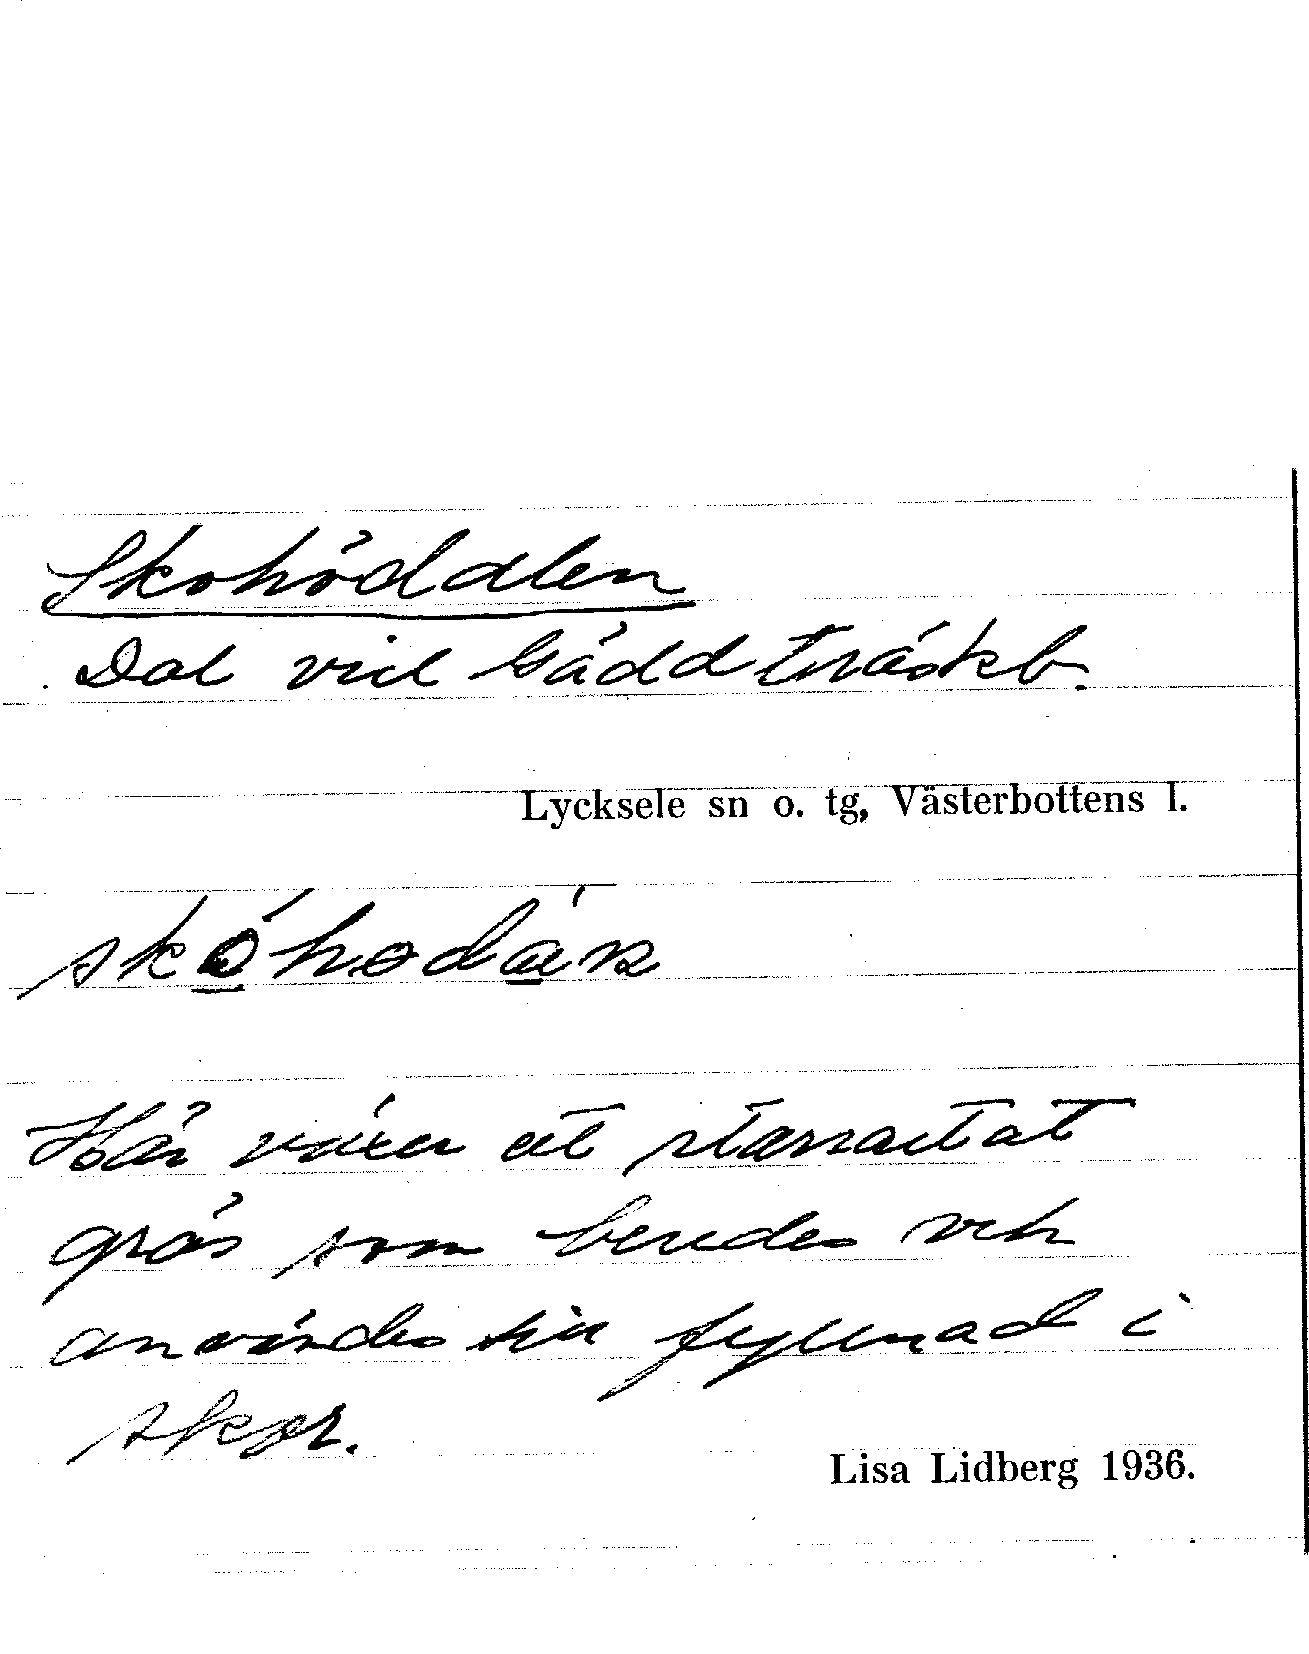 Skohöddlen
Dal vid Gäddträskb.
Lycksele sn o. tg, Västerbottens l.
Här växer ett starrartat
gräs som beredes och
användes till fyllnad i
skor.
Lisa Lidberg 1936.